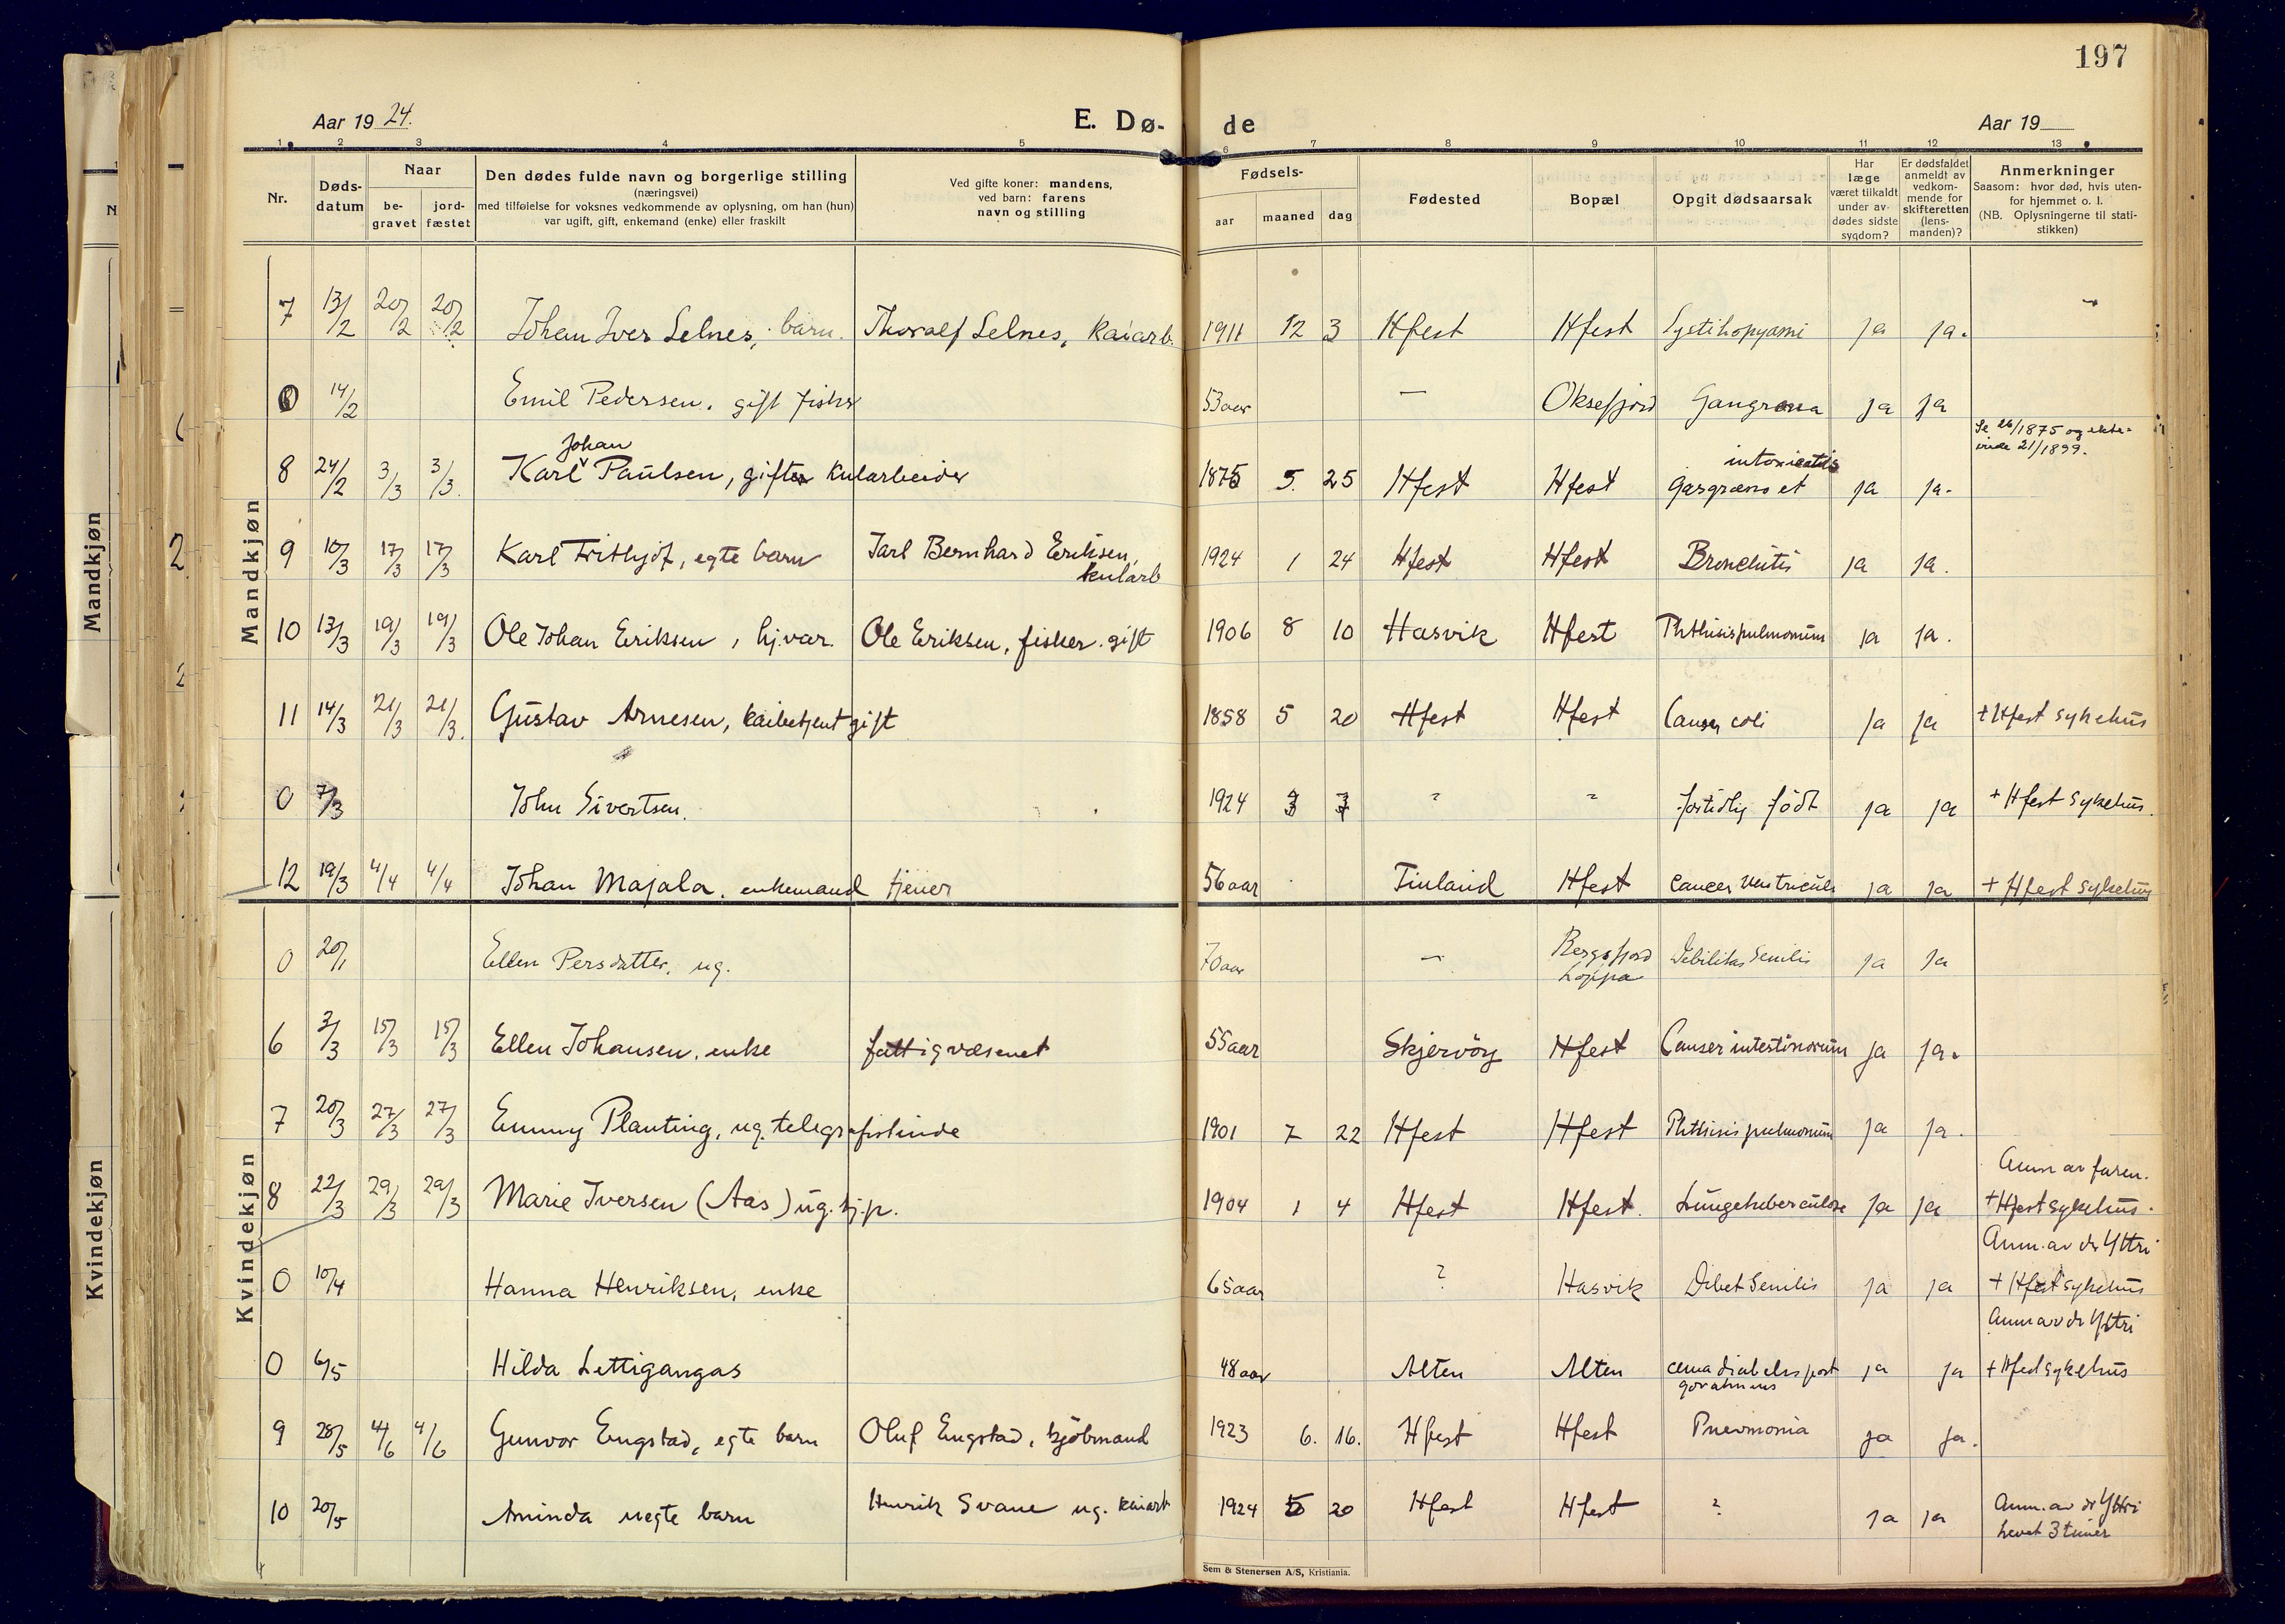 197
Aar 19 24.
E. Dø-
de
Aar 19
1 2 3 4 5 6 7 8 9 10 11 12 13
Nr.
Døds-
datum
Naar
be-
gravet
jord-
fæstet
Den dødes fulde navn og borgerlige stilling
(næringsvei)
med tilføielse for voksnes vedkommende av oplysning, om han (hun)
var ugift, gift, enkemand (enke) eller fraskilt
Ved gifte koner: mandens,
ved barn: farens
navn og stilling
Fødsels-
aar maaned dag
Fødested
Bopæl
Opgit dødsaarsak
Har
læge
været tilkaldt
under av-
dødes sidste
sygdom?
Er dødsfaldet
anmeldt av
vedkom-
mende for
skifteretten
(lens-
manden)?
Anmerkninger
Saasom: hvor død, hvis uten-
for hjemmet o. l.
(NB. Oplysningerne til stati-
stikken)
Mandkjøn
7 13/2 20/2 20/2 Johan Iver Selnes, barn. Thoralf Selnes, kaiarb. 1911 12 3 Hfest Hfest ja ja.
0 14/2 Emil Pedersen. gift fisker 53 aar — Oksefjord Gangrena ja ja
Se 26/1875 og ekte-
viede 21/1899.
Johan
intoxicatio
8 24/2 3/3 3/3. Karl Paulsen, gift kularbeider 1875 5. 25 Hfest Hfest Gasgræns et ja ja.
9 10/3 17/3 17/3 Karl Frithjof, egte barn Jarl Bernhard Eriksen, 1924 1 24 Hfest Hfest Bronchitis ja ja.
kularb
10 13/3 19/3 19/3 Ole Johan Eriksen, hj.var. Ole Eriksen, fisker. gift 1906 8 10 Hasvik Hfest Phthisis pulmonum ja ja.
11 14/3 21/3 21/3. Gustav Arnesen, kaibetjent gift 1858 5 20 Hfest Hfest Cancer coli ja ja + Hfest sykehus
0 7/3 John Sivertsen. 1924 3 7 " " fortidlig født ja ja + Hfest sykehus.
12 19/3 4/4 4/4 Johan Majala. enkemand tjener 56 aar Finland Hfest Cancer Ventriculi ja ja + Hfest sykehus
Kvindekjøn
0 20/1 Ellen Persdatter, ug. 70 aar — Bergsfjord Debilitas Senilis ja ja
Loppa
6 3/3 15/3 15/3 Ellen Johansen, enke fattigvæsenet 55 aar Skjervöy Hfest Canser intestinorum ja ja.
7 20/3 27/3 27/3 Emmy Planting, ug. telegrafistinde 1901 7 22 Hfest Hfest Phthisis pulmonum ja ja.
Anm av faren.
8 22/3 29/3 29/3 Marie Iversen (Aas) ug. hj.p. 1904 1 4 Hfest Hfest. Lungetuberculose ja ja + Hfest sykehus.
Anm. av dr Yttri
0 10/4 Hanna Henriksen, enke 65 aar ? Hasvik Debet Senilis ja ja + Hfest sykehus
Anm av dr Yttri
0 6/5 Hilda Lettigangas 48 aar Alten Alten ja ja + Hfest sykehus
9 28/5 4/6 4/6 Gunvor Engstad, egte barn Oluf Engstad, kjöbmand 1923 6. 16. Hfest Hfest Pnevmonia ja ja.
10 20/5 Aninda uegte barn Henrik Svane ug. kaiarb 1924 5 20 Hfest Hfest ? ja ja Anm. av dr Yttri
Levet 3 timer
Sem & Stenersen A/S, Kristiania.
Mandkjøn
Kvindekjøn